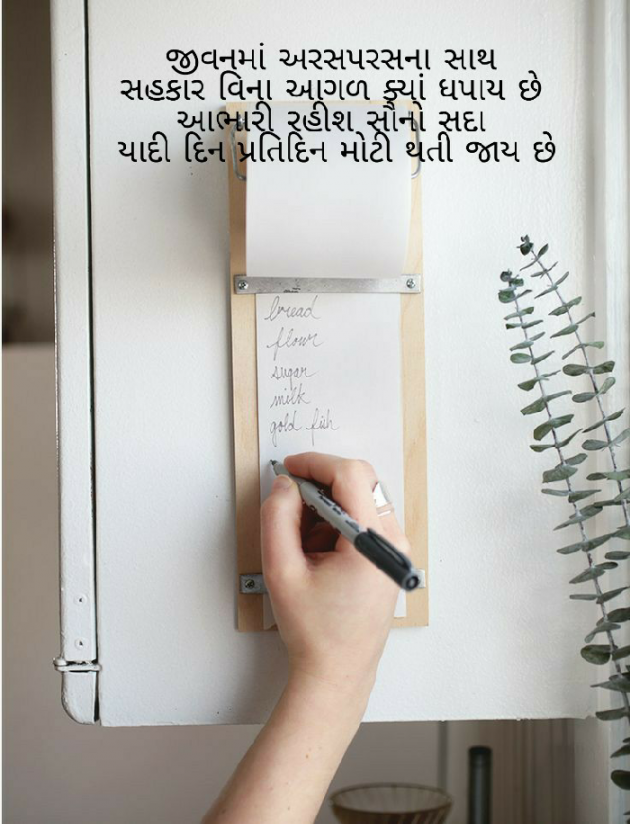 જીવનમાં અરસપરસના સાથ
સહકાર વિના આગળ ક્યાં ધપાય છે
આભારી રહીશ સૌનો સદા
યાદી દિન પ્રતિદિન મોટી થતી જાય છે
bread
flour
sugar
milk
gold fish